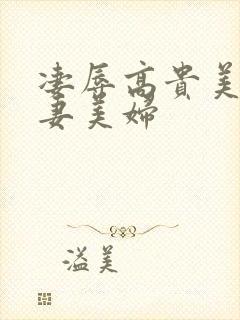 凄辱高贵美
妻美婦
溢美